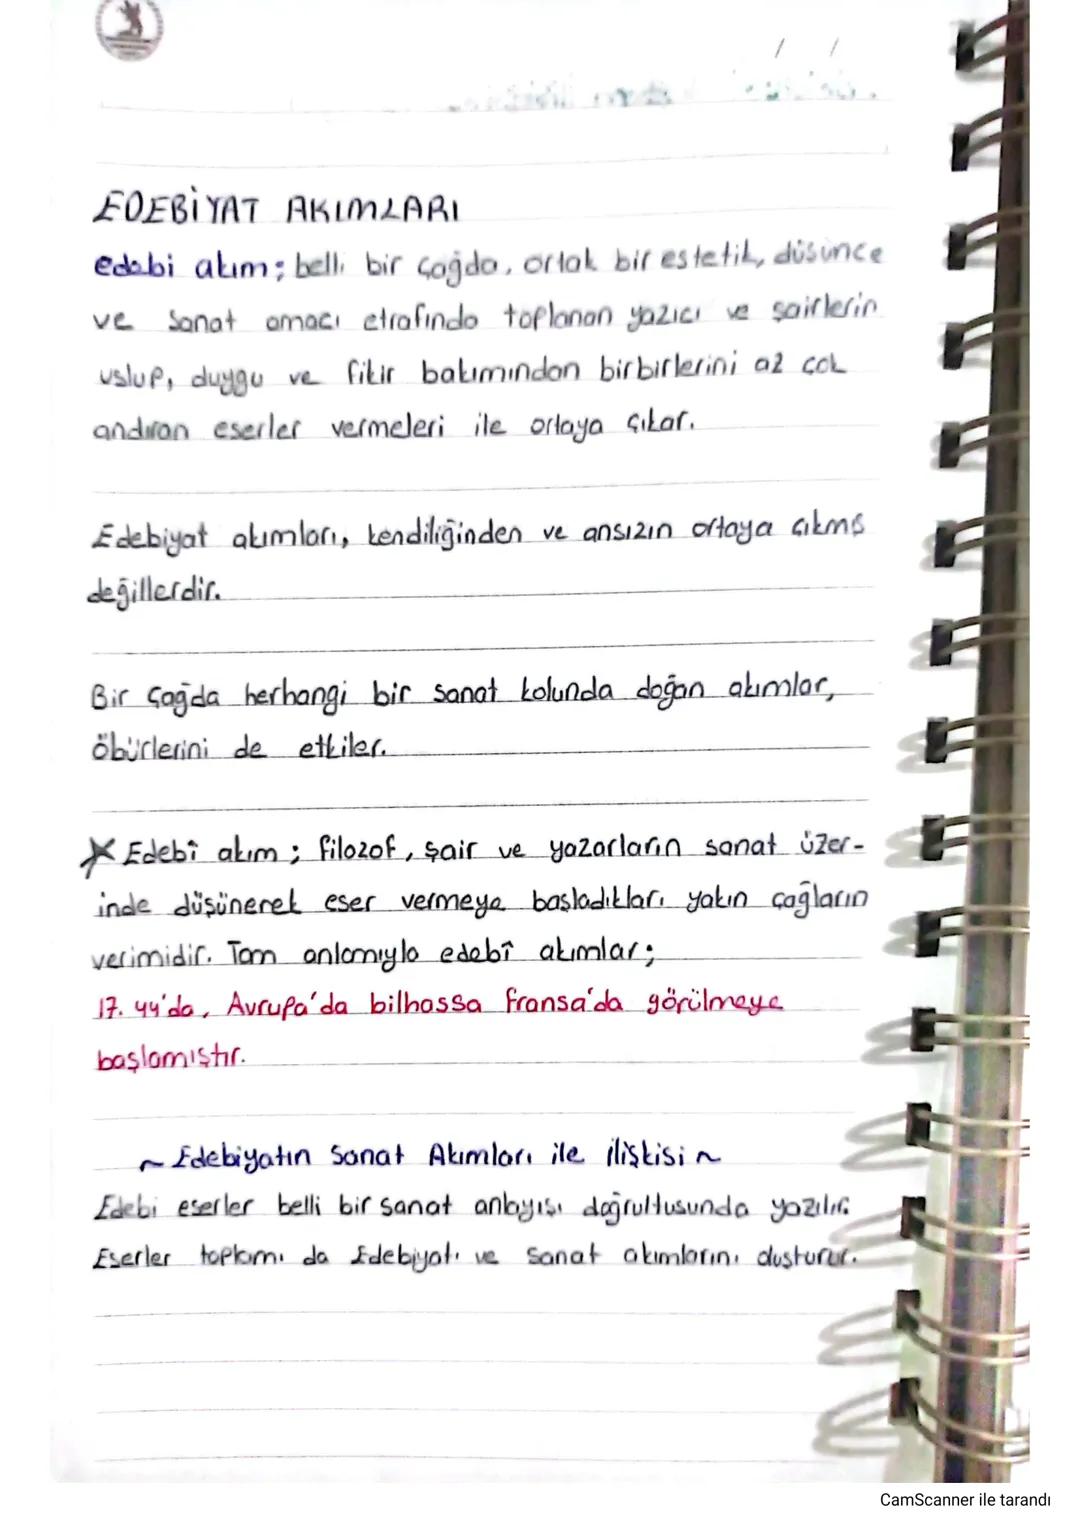 / /
EDEBİYAT AKIMLARI
edebi akım; belli bir çağda, ortak bir estetik, düşünce
ve sanat amacı etrafında toplanan yazıcı ve şairlerin
uslup, duygu ve fikir bakımından birbirlerini az çok
andıran eserler vermeleri ile ortaya çıkar.
Edebiyat akımları, kendiliğinden ve ansızın ortaya çıkmış
değillerdir.
Bir çağda herhangi bir sanat kolunda doğan akımlar,
öbürlerini de etkiler.
Edebî akım; filozof, şair ve yazarların sanat üzer-
inde düşünerek eser vermeye başladıkları yakın çağların
verimidir. Tam anlamıyla edebî akımlar;
17. yy'da, Avrupa'da bilhassa Fransa'da görülmeye
başlamıştır.
~ Edebiyatın Sanat Akımları ile ilişkisi ~
Edebi eserler belli bir sanat anlayışı doğrultusunda yazılır.
Eserler toplamı da Edebiyatı ve sanat akımlarını oluşturur.
CamScanner ile tarandı